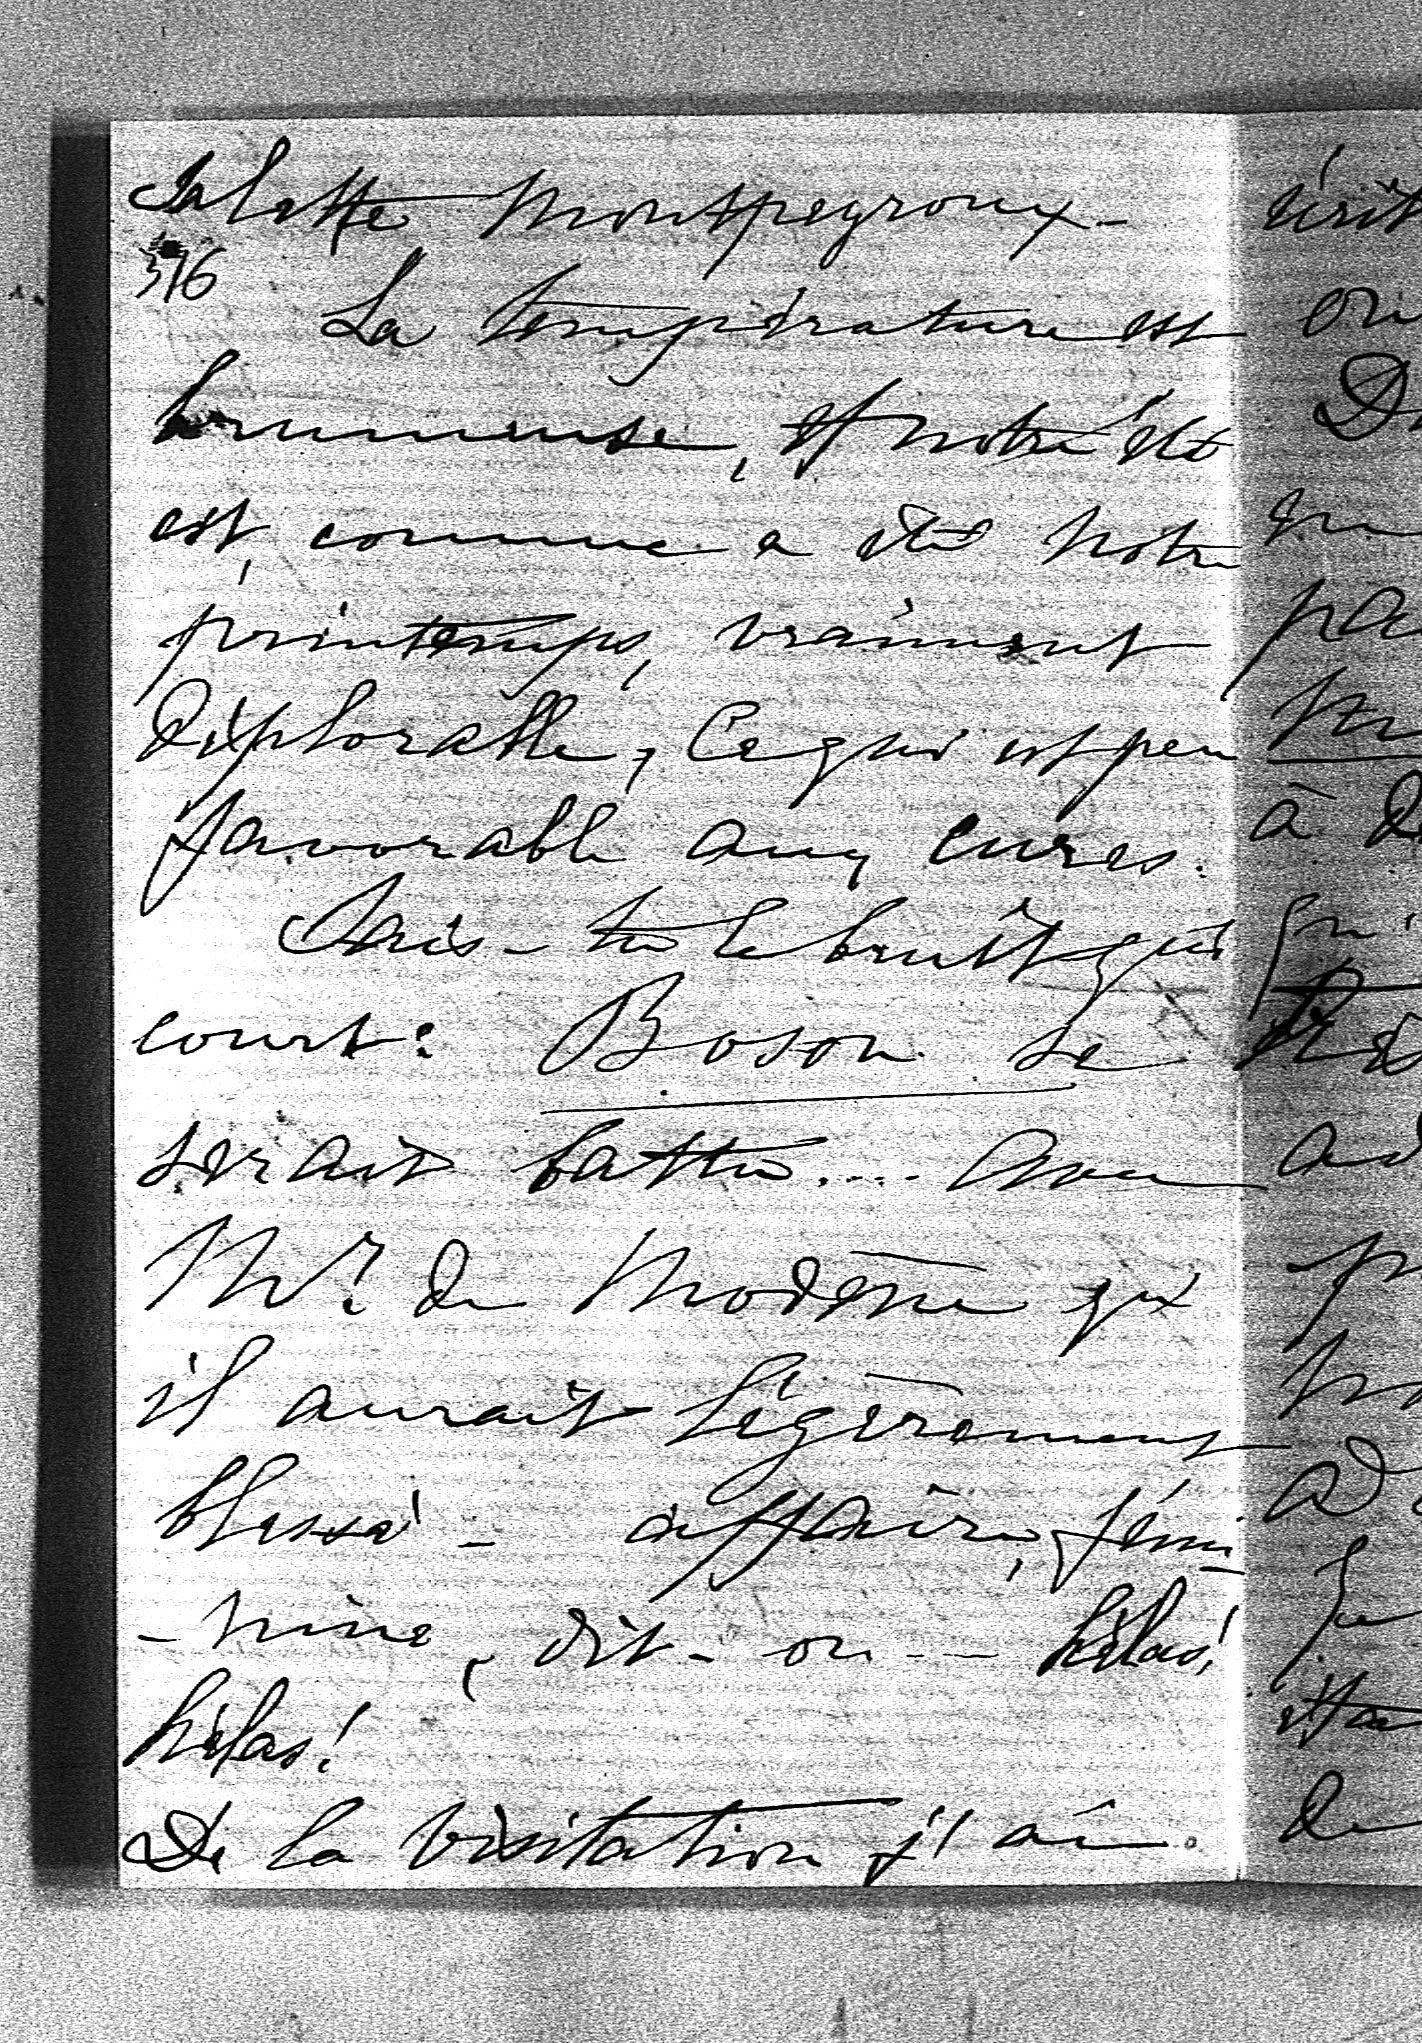 Salette Montpeyroux -
516
La température est
brumeuse, et notre été
est, comme a été notre
printemps, vraiment
déplorable, ce qui est peu
favorable aux cures.
Sais-tu le bruit qui
court: Boson se
serait battu.... avec
Mr. de Modène qu'
il aurait légèrement
blessé - affaire fémi-
-nine, dit-on -- hélas!
hélas!
De la Visitation j'ai
on
qu
pa
à d
de